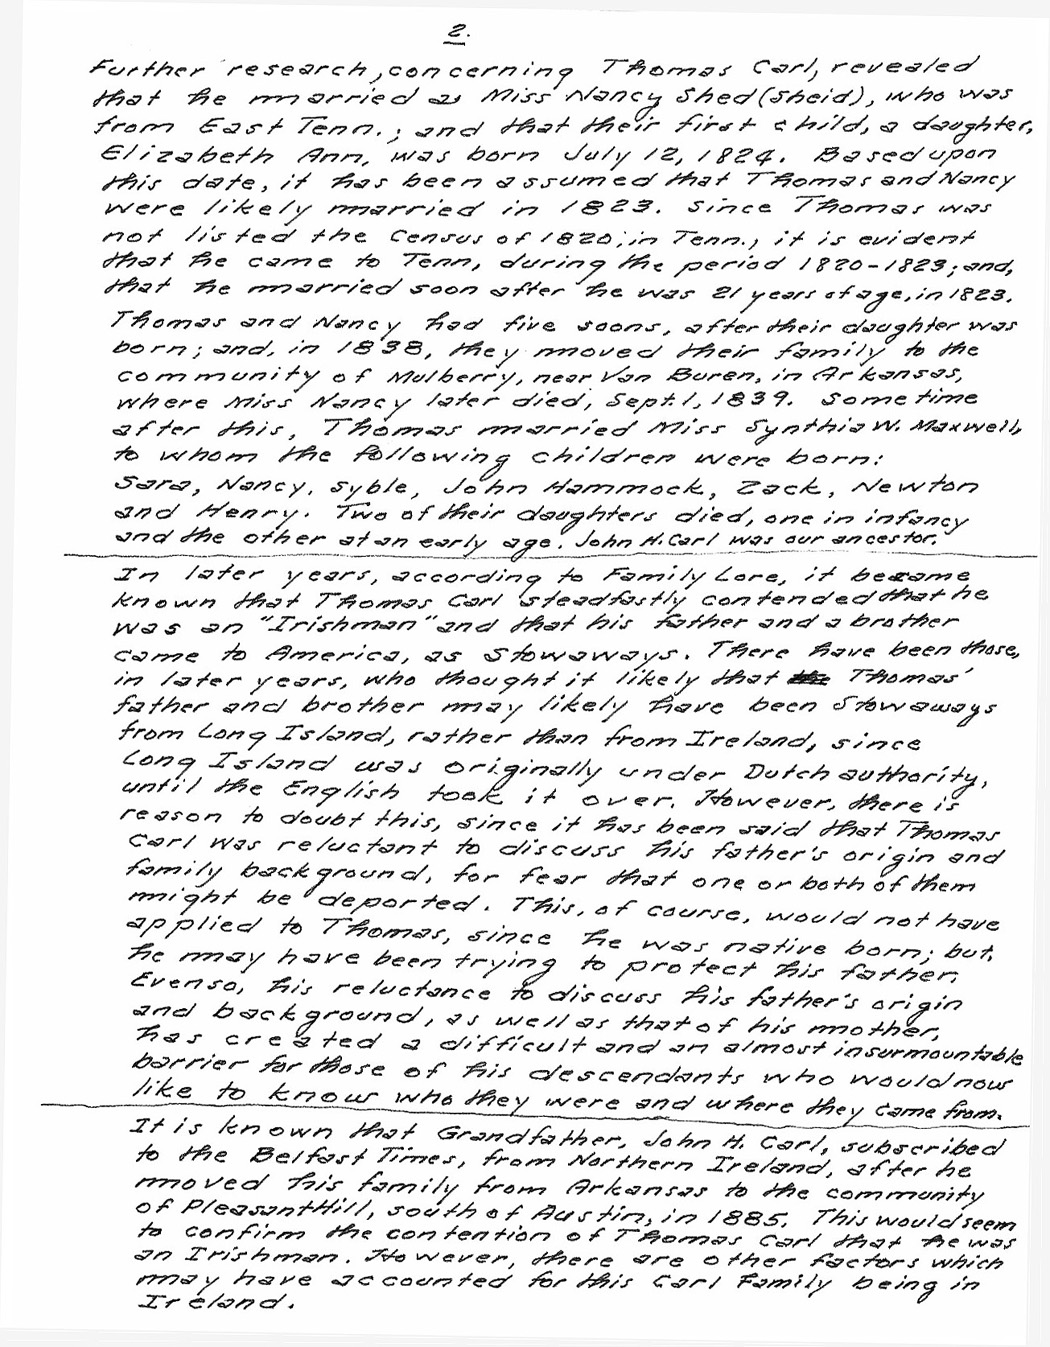 2.
Further research, concerning Thomas Carl, revealed
that he married a Miss Nancy Shed (Sheid), who was
from East Tenn.; and that their first child, a daughter,
Elizabeth Ann, was born July 12, 1824. Based upon
this date, it has been assumed that Thomas and Nancy
were likely married in 1823. Since Thomas was
not listed the Census of 1820, in Tenn., it is evident
that he came to Tenn, during the period 1820-1823; and,
that he married soon after he was 21 years of age, in 1823.
Thomas and Nancy had five soons, after their daughter was
born; and, in 1838, they moved their family to the
community of Mulberry, near Van Buren, in Arkansas,
where Miss Nancy later died, Sept. 1, 1839. Sometime
after this, Thomas married Miss Synthia W. Maxwell,
to whom the following children were born:
Sara, Nancy, Syble, John Hammock, Zack, Newton
and Henry. Two of their daughters died, one in infancy
and the other at an early age. John H. Carl was our ancestor.
In later years, according to Family Lore, it became
known that Thomas Carl steadfastly contended that he
was an "Irishman" and that his father and a brother
came to America, as Stowaways. There have been those,
in later years, who thought it likely that Thomas'
father and brother may likely have been Stowaways
from Long Island, rather than from Ireland, since
Long Island was originally under Dutch authority,
until the English took it over. However, there is
reason to doubt this, since it has been said that Thomas
Carl was reluctant to discuss his father's origin and
family background, for fear that one or both of them
might be deported. This, of course, would not have
applied to Thomas, since he was native born; but,
he may have been trying to protect his father.
Even so, his reluctance to discuss his father's origin
and background, as well as that of his mother,
has created a difficult and an almost insurmountable
barrier for those of his descendants who would now
like to know who they were and where they came from.
It is known that Grandfather, John H. Carl, subscribed
to the Belfast Times, from Northern Ireland, after he
moved his family from Arkansas to the community
of Pleasant Hill, south of Austin, in 1885. This would seem
to confirm the contention of Thomas Carl that he was
an Irishman. However, there are other factors which
may have accounted for this Carl Family being in
Ireland.